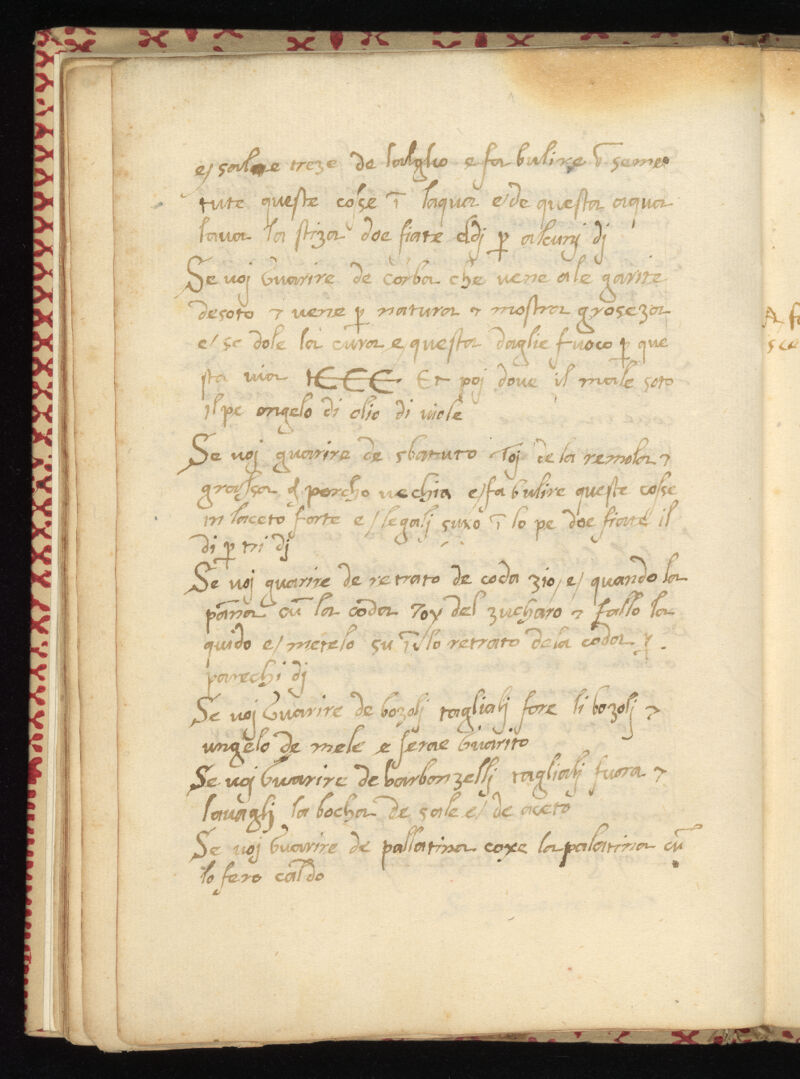 e/ sale e treze de lalglio e fa bulire ī seme
tute queste cosse ī laqua e/ de questa aqua
lava la stiza doe fiate el dj p̱ alcunj dj
Se voj Guarire de corba che vene ale garite
desoto ⁊ vene p̱ natura ⁊ mostra groseza
e/ se dole la cura e/ questa daglie fuoco p̱ que
sta via Et poj dove il male soto
il pe ongelo di olio di viole
Se voj guarire de sbatuto Toj de la remola ⁊
grassa d porcho vechia e/ fa bulire queste cosse
in laceto forte e/ legalj suxo ī lo pe doe fiate il
di p̱ tri dj
Se voj guarire de retrato de coda zio/ e/ quando la
pāna cū la coda Toy del zucharo ⁊ fallo la
quido e/ metelo su ī lo retrato dela coda ⁊
parechi dj
Se voj Guarire de bozolj tagliali fore li bozolj ⁊
ungelo de mele e serae Guarito
Se voj Guarire de barbonzellj tagliali fuora ⁊
lavaglj la bocha de sale e/ de aceto
Se voj Guarire de pallatina coxe la palatina cū
lo fero caldo
A fa
see